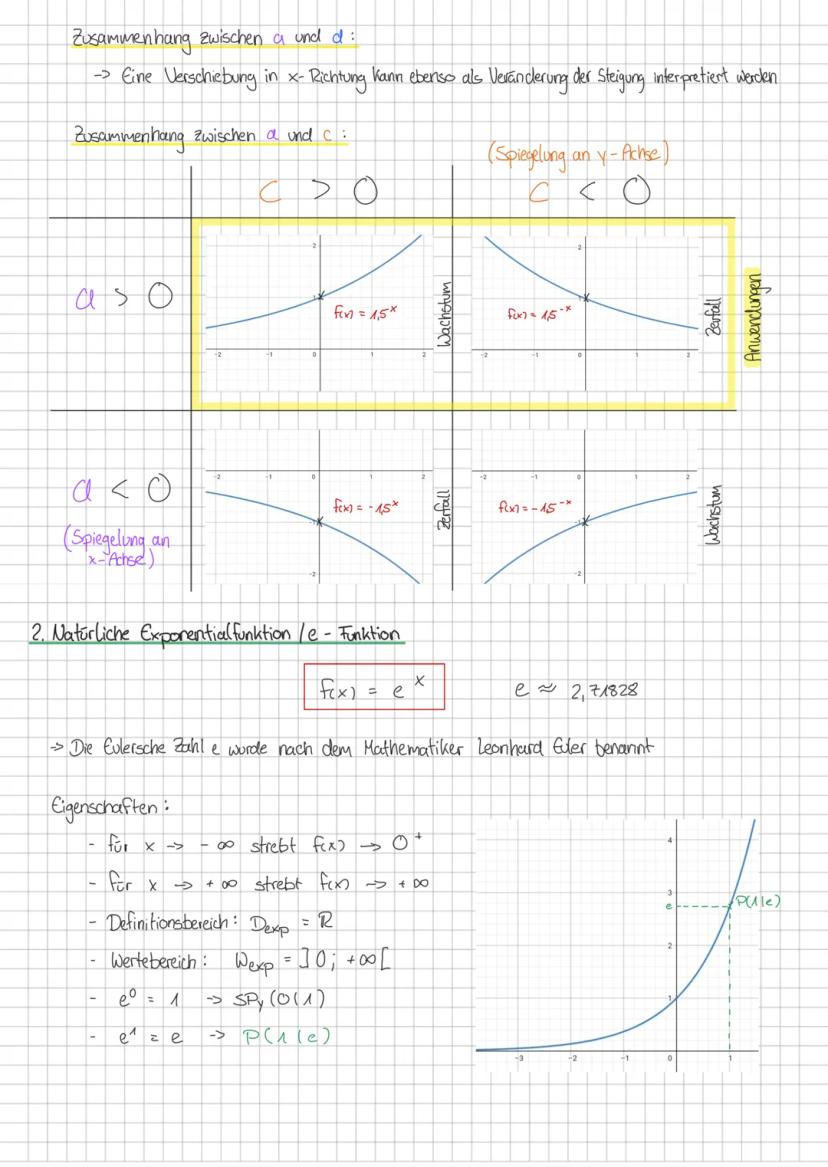 Zusammenhang zwischen a und d:
-> Eine Verschiebung in x-Richtung kann ebenso als Veränderung der Steigung interpretiert werden
Zusammenhang zwischen a und c:
(Spiegelung an y-Achse)
c > 0
c < 0
a > 0
2
f(x) = 1,5^x
-2 -1 0 1 2
Wachstum
2
f(x) = 1,5^-x
-2 -1 0 1 2
Zerfall
Anwendungen
a < 0
(Spiegelung an
x-Achse)
-2 -1 0 1 2
f(x) = -1,5^x
-2
Zerfall
-2 -1 0 1 2
f(x) = -1,5^-x
-2
Wachstum
2. Natürliche Exponentialfunktion / e - Funktion
f(x) = e^x
e ≈ 2,71828
-> Die Eulersche Zahl e wurde nach dem Mathematiker Leonhard Euler benannt
Eigenschaften:
- für x -> - ∞ strebt f(x) -> 0^+
- für x -> + ∞ strebt f(x) -> + ∞
- Definitionsbereich: D_exp = ℝ
- Wertebereich: W_exp = ]0; +∞[
- e^0 = 1 -> SPy (0|1)
- e^1 = e -> P(1|e)
4
3
e
P(1|e)
2
1
-3 -2 -1 0 1